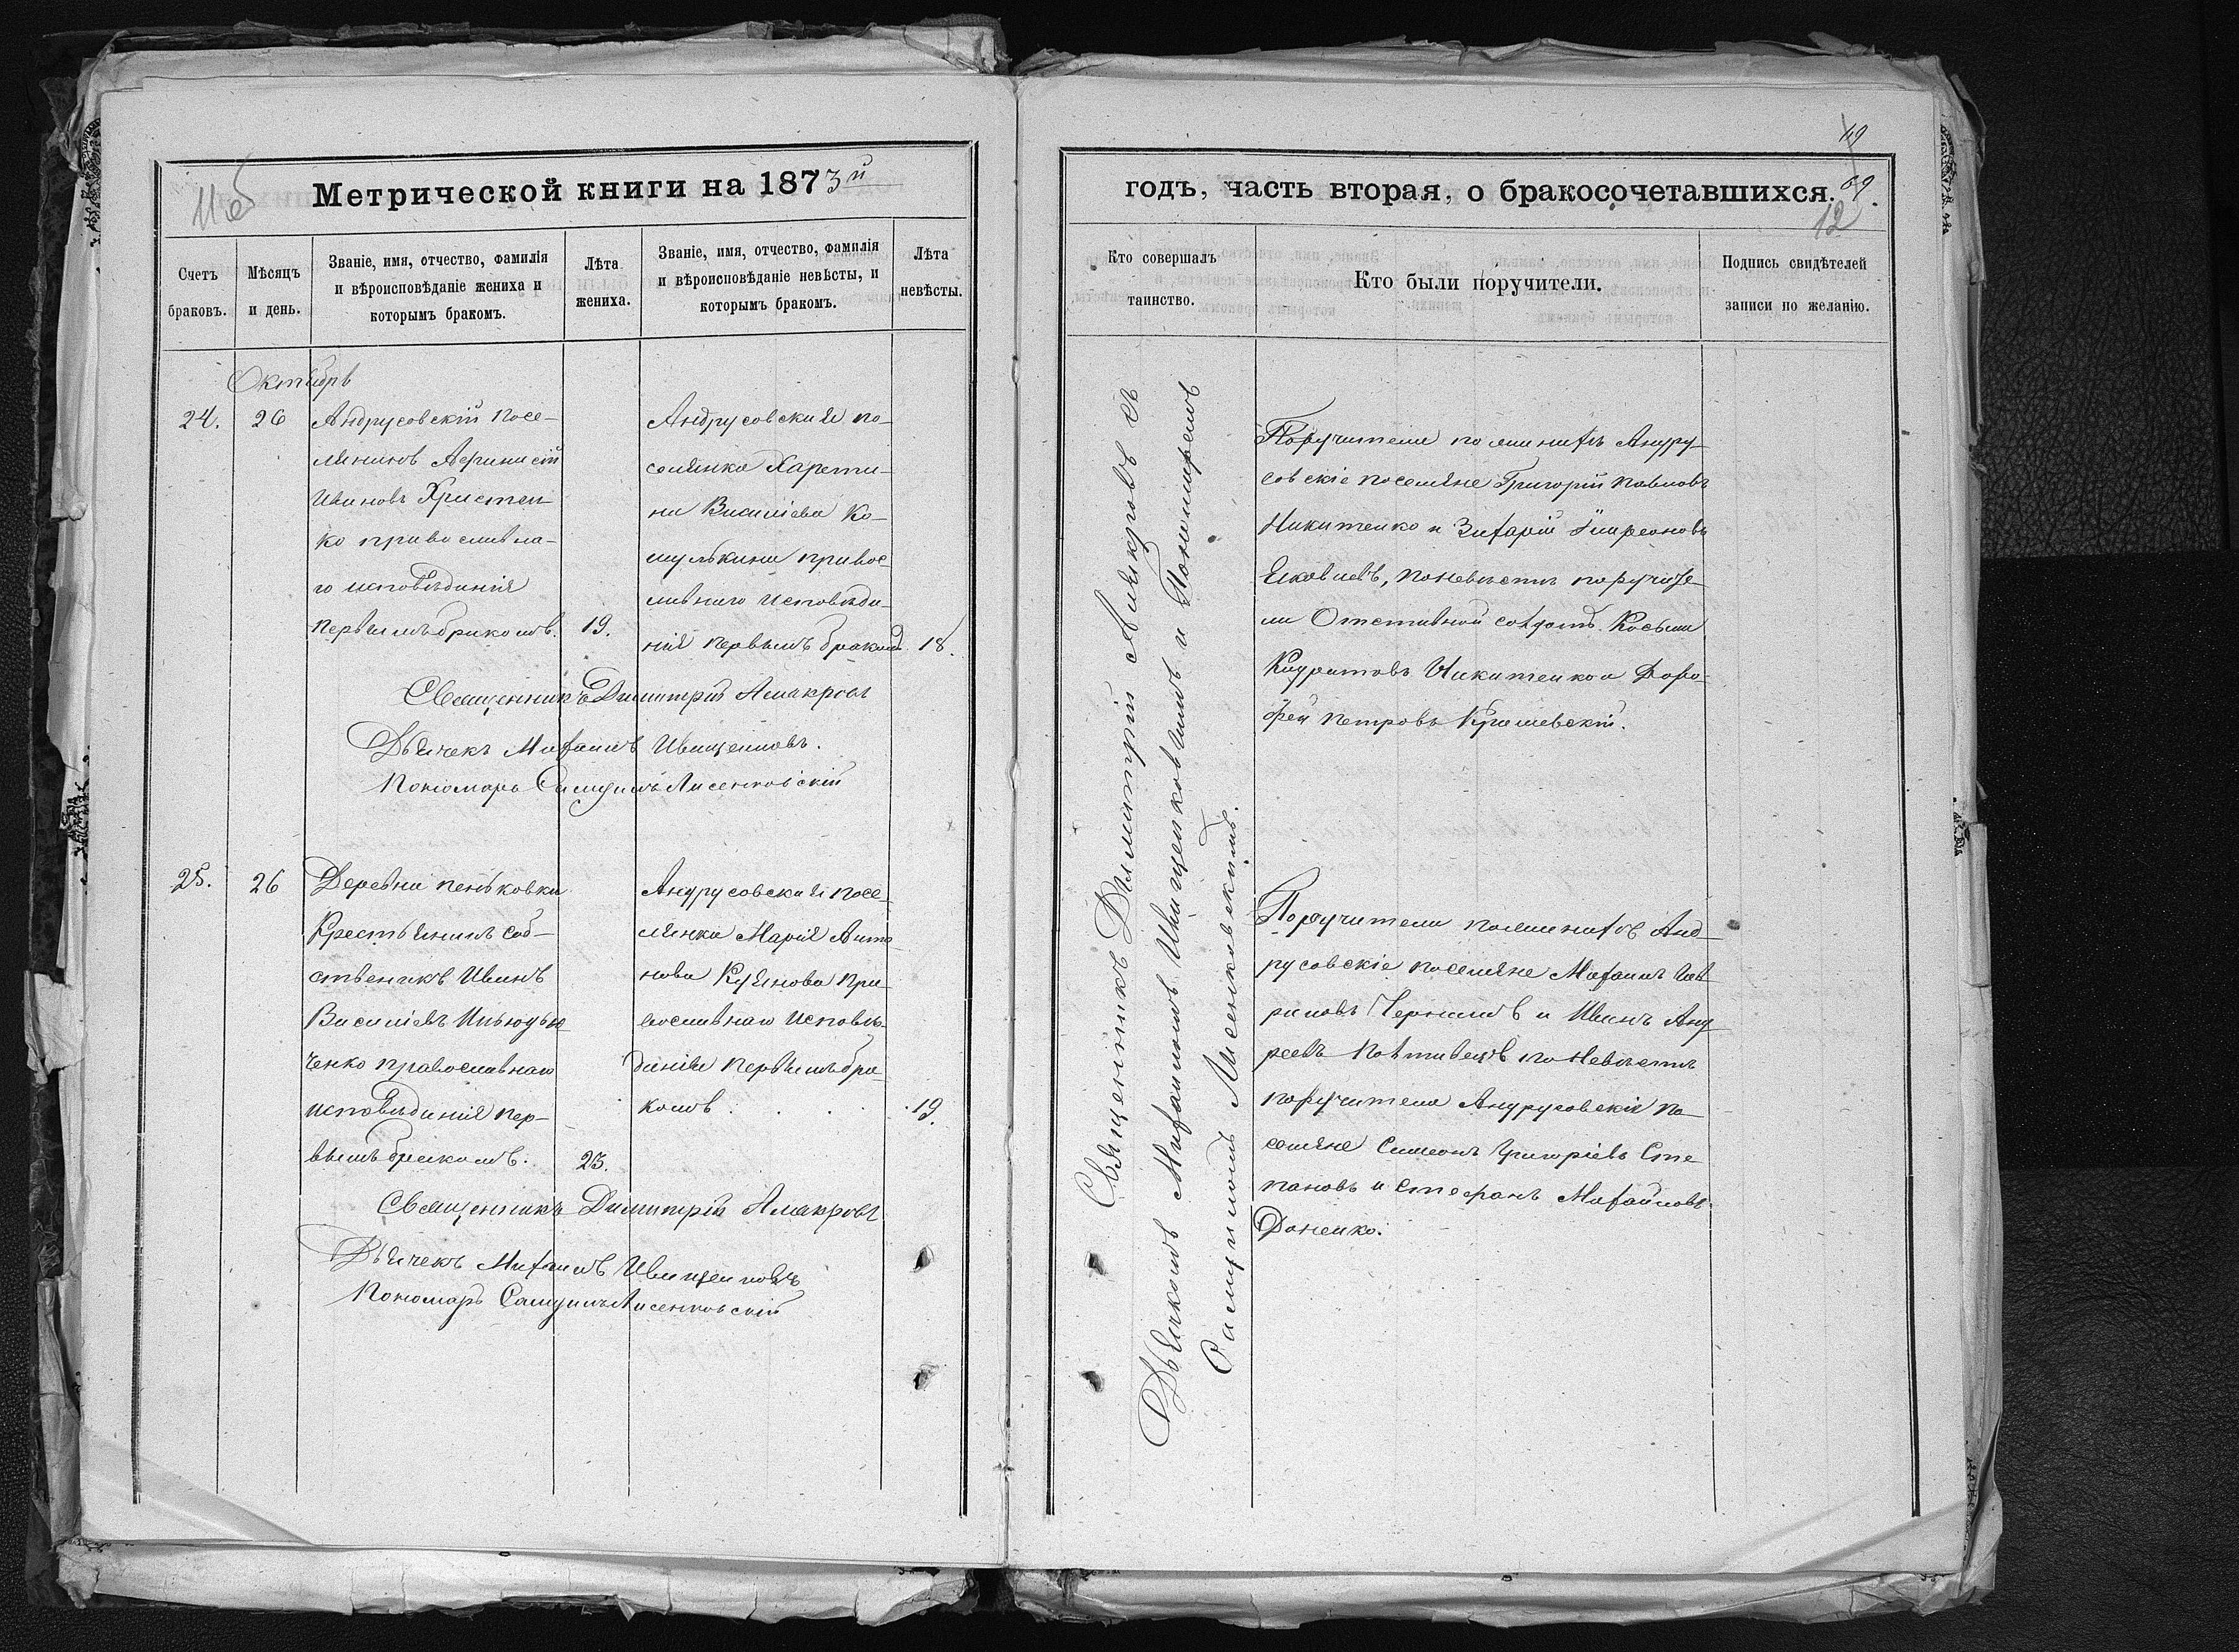 Метрической книги на 1873й
Счетъ браковъ.
Мѣсяцъ и день.
Званіе, имя, отчество, фамилія
и вѣроисповѣданіе жениха и
которымъ бракомъ.
Лѣта жениха.
Званіе, имя, отчество, фамилія
и вѣроисповѣданіе невѣсты, и
которымъ бракомъ.
Лѣта невѣсты.
Октябрь
24.
26
Андрусовскій посе-
лянинъ Афанасій
Ивановъ Христен-
ко православна-
го исповѣданія
первымъ бракомъ.
19.
Андрусовская по-
селянка Харити-
на Василіева Ко-
шулькина право
славнаго исповѣда-
нія первымъ бракомъ
18.
Священникъ Димитрій Амакровъ
Дьячекъ Михаилъ Иващенковъ.
Пономарь Самуилъ Лисенковскій
25.
26
Деревни Пеньковки
Крестьянинъ соб-
ственикъ Иванъ
Василіевъ
ченко православнаго
исповѣданія пер-
вымъ бракомъ.
23.
Андрусовская посе-
лянка Марія Анто-
нова Куянова пра-
вославнаго исповѣ-
данія первымъ бра-
комъ . . . .
19.
Священникъ Димитрій Амакровъ
Дьячекъ Михаилъ Иващенковъ
Пономарь Самуилъ Лисенковскій
69.
12
годъ, часть вторая, о бракосочетавшихся.
Кто совершалъ
таинство.
Кто были поручители.
Подпись свидѣтелей
записи по желанію.
Священникъ Димитрій Амакровъ съ
Дьячкомъ Михаиломъ Иващенковымъ и Пономаремъ
Самуиломъ Лисенковскимъ.
Поручители по женихѣ Андру-
совскіе поселяне Григорій Павловъ
Никитенко и Захарій
Яковлевъ, по невѣстѣ поручите-
ли Отставной солдатъ Косьма
Кондратовъ Никитенко и Доро-
фей Петровъ Крашевскій.
Поручители по женихѣ Анд-
русовскіе поселяне Михаилъ Гав
риловъ и Иванъ Анд
реевъ по невѣстѣ
поручители Андрусовскіе по
селяне Симеонъ Григоріевъ Сте
пановъ и Стефанъ Михайловъ
Доненко.